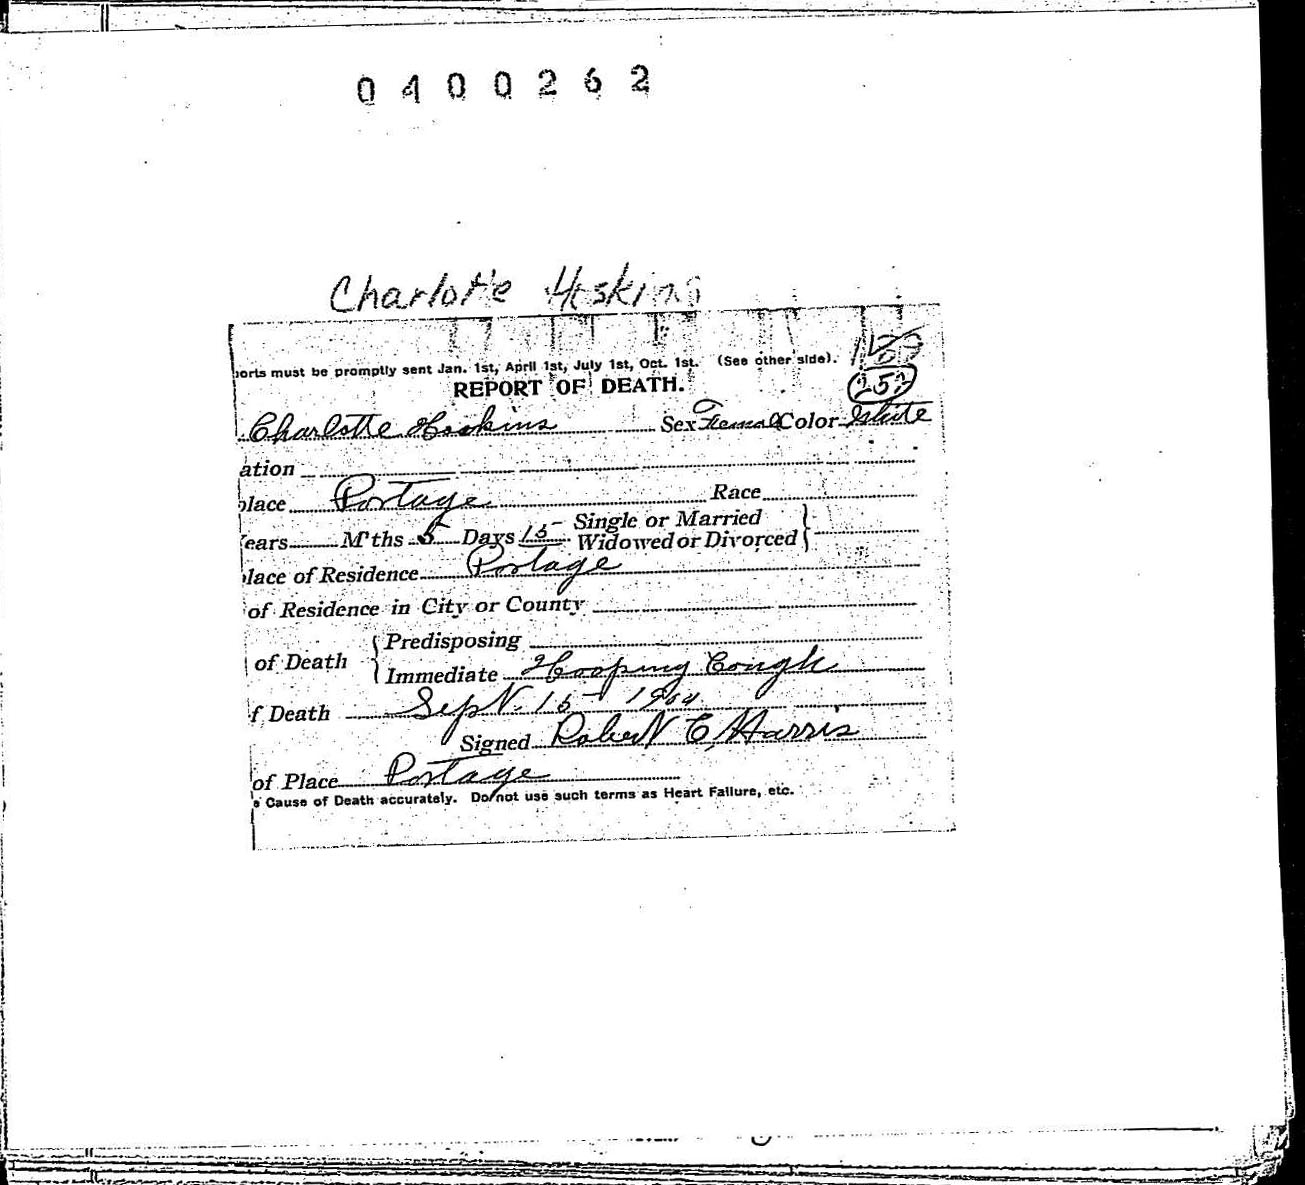 0400262
Charlotte Hoskins
orts must be promptly sent Jan. 1st, April 1st, July 1st, Oct. 1st. (See other side).
REPORT OF DEATH.
252
Charlotte Hoskins Sex Female Color White
ation
place Portage Race
Years M'ths 5 Days 15 Single or Married
Widowed or Divorced
lace of Residence Portage
of Residence in City or County
of Death Predisposing
Immediate Hooping Cough
f Death Sept. 15 1904
Signed Robert C. Harris
of Place Portage
e Cause of Death accurately. Do not use such terms as Heart Failure, etc.